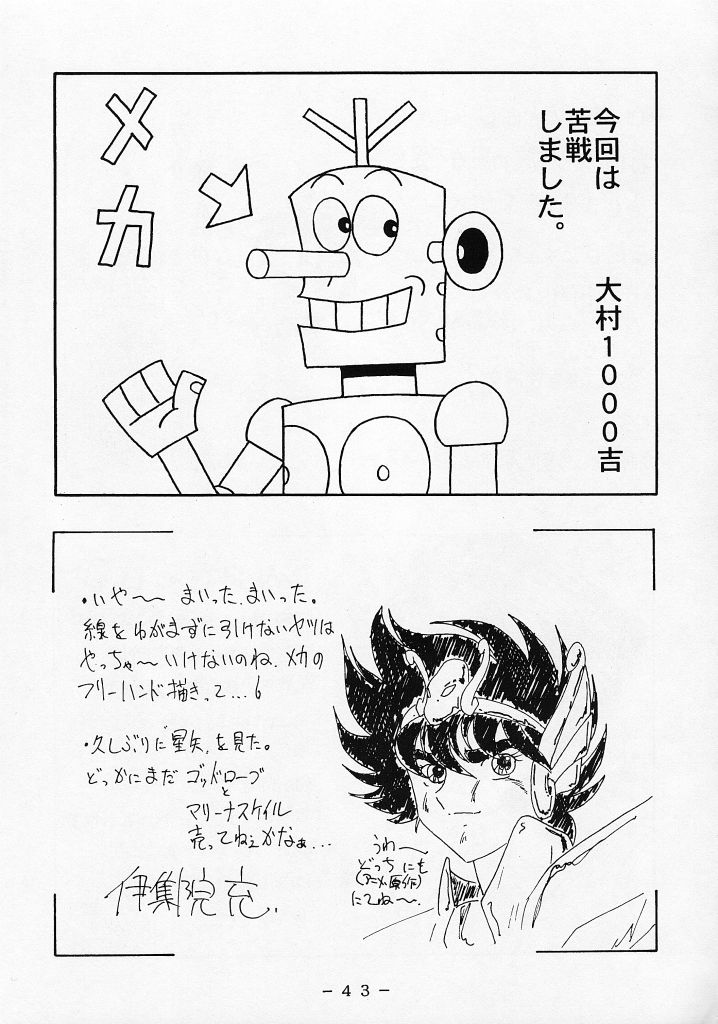 今回は
苦戦
しました。
大村1000吉
メカ
・いや〜〜 まいった、まいった。
線をゆがまずに引けないヤツは
やっちゃ〜いけないのね、メカの
フリーハンド描きって…6
・久しぶりに“星矢”を見た。
どっかにまだ ゴッドローブ
と
マリーナスケイル
売ってねぇかなぁ…
伊集院 充.
うわ〜
どっちにも
(アニメ・原作)
にてね〜.
－43－